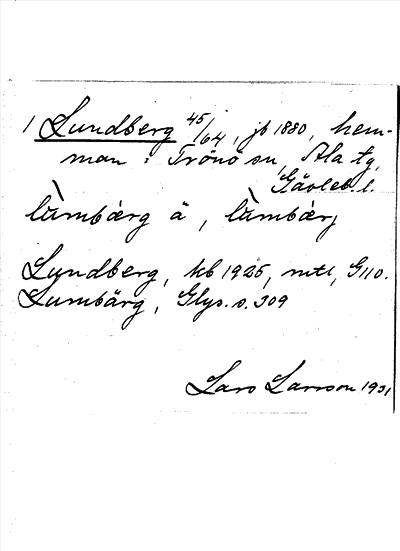 1 Lundberg 45/64, jb 1880, hem-
man i Trönö sn, Ala tg,
Gävleb. l.
lùmbærg ä, lùmbærj
Lundberg, kb 1925, mtl, G110.
Lumbärg, Glys. s. 309
Lars Larsson 1931